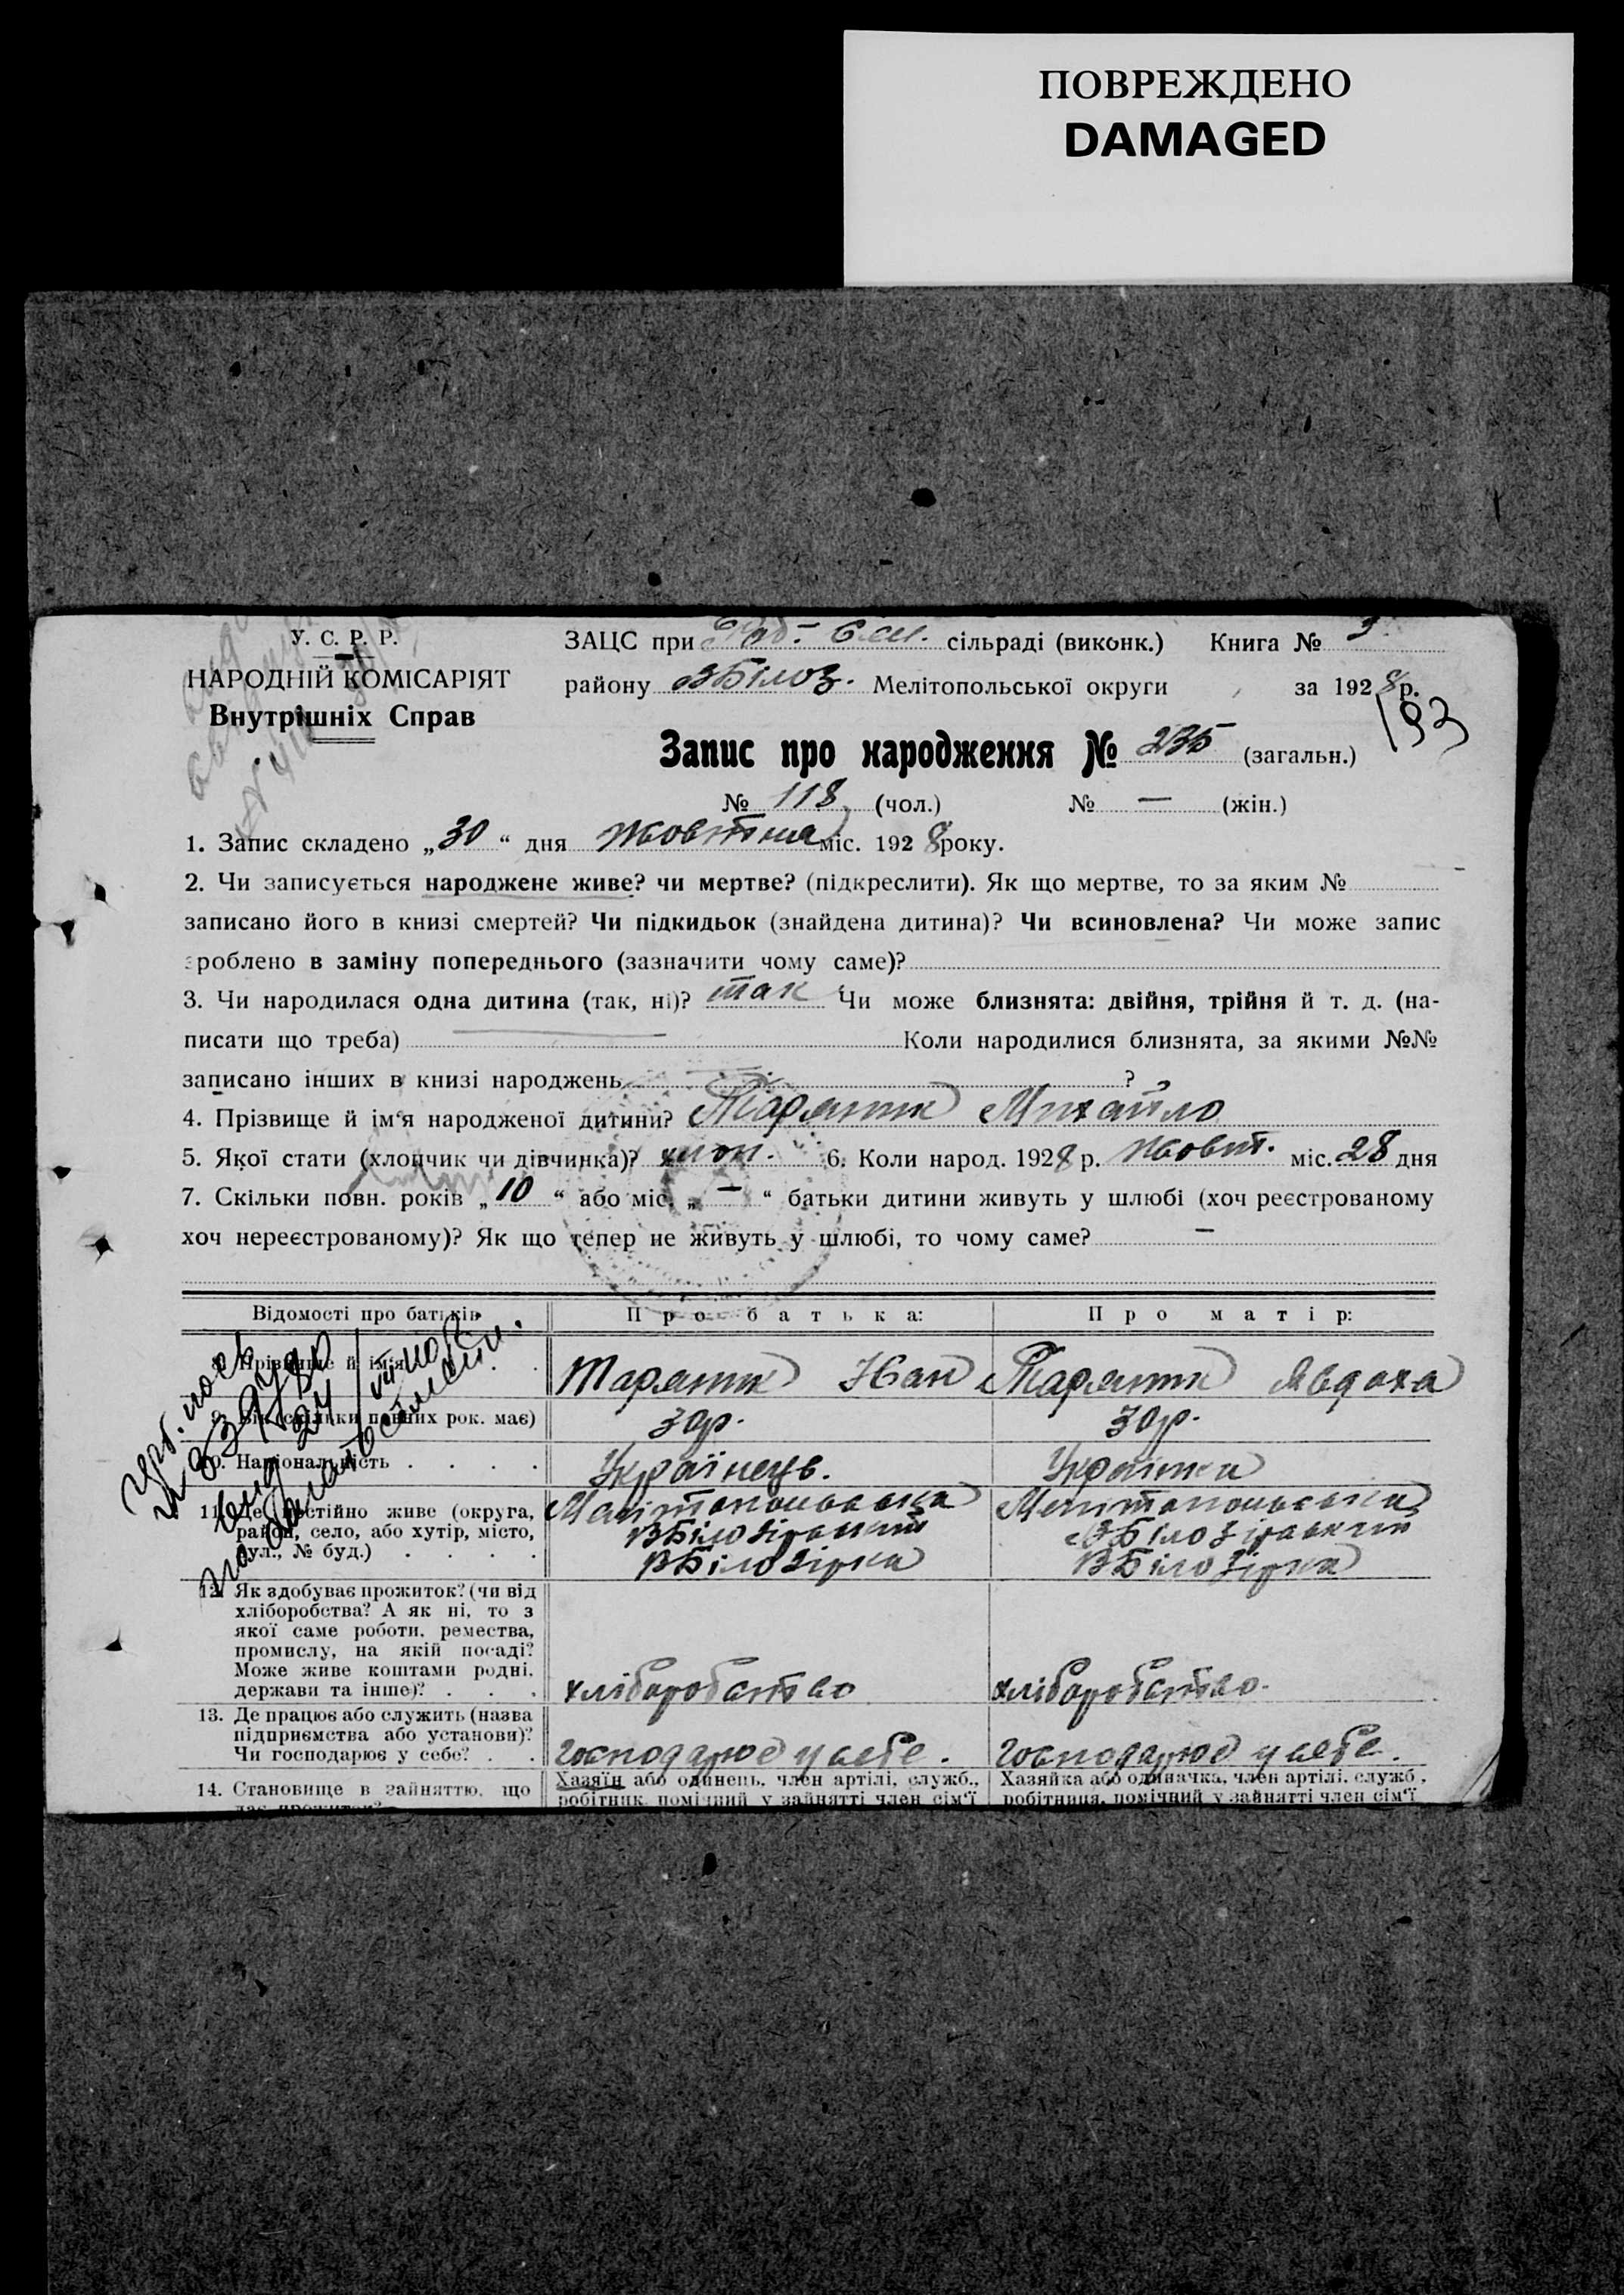 ПОВРЕЖДЕНО
DAMAGED
У. С. Р. Р.
НАРОДНІЙ КОМІСАРІЯТ
Внутрішніх Справ
ЗАЦС при сільраді (виконк.) Книга № 3
району ВБілоз. Мелітопольської округи за 1928 р.
193
Запис про народження № 235 (загальн.)
№ 118 (чол.) № — (жін.)
1. Запис складено „30“ дня Жовтня міс. 1928 року.
2. Чи записується народжене живе? чи мертве? (підкреслити). Як що мертве, то за яким №
записано його в книзі смертей? Чи підкидьок (знайдена дитина)? Чи всиновлена? Чи може запис
зроблено в заміну попереднього (зазначити чому саме)?
3. Чи народилася одна дитина (так, ні)? так Чи може близнята: двійня, трійня й т. д. (на-
писати що треба) — Коли народилися близнята, за якими №№
записано інших в книзі народжень ?
4. Прізвище й ім'я народженої дитини? Михайло
5. Якої стати (хлопчик чи дівчинка)? хлоп. 6. Коли народ. 1928 р. Жовт. міс. 28 дня
7. Скільки повн. років „10“ або міс. „—“ батьки дитини живуть у шлюбі (хоч реєстрованому
хоч нереєстрованому)? Як що тепер не живуть у шлюбі, то чому саме? —
Відомості про батьків Про батька: Про матір:
8. Прізвище й ім'я . . Іван Явдоха
9. Вік (скільки повних рок. має) 30р. 30р.
10. Національність . . . . Українець. Українка
11. Де постійно живе (округа, Мелітопольська Мелітопольська
район, село, або хутір, місто, ВБілозірський ВБілозірський
вул., № буд.) . . . . ВБілозірка ВБілозірка
12. Як здобуває прожиток? (чи від
хліборобства? А як ні, то з
якої саме роботи, ремества,
промислу, на якій посаді?
Може живе коштами родні,
держави та інше)? . . . хлібаробство хлібаробство.
13. Де працює або служить (назва
підприємства або установи)?
Чи господарює у себе? . . господарює у себе. господарює у себе.
14. Становище в зайняттю, що Хазяїн або одинець, член артілі, служб., Хазяйка або одиначка, член артілі, служб.,
дає прожиток? робітник, помічний у зайнятті член сім'ї робітниця, помічний у зайнятті член сім'ї